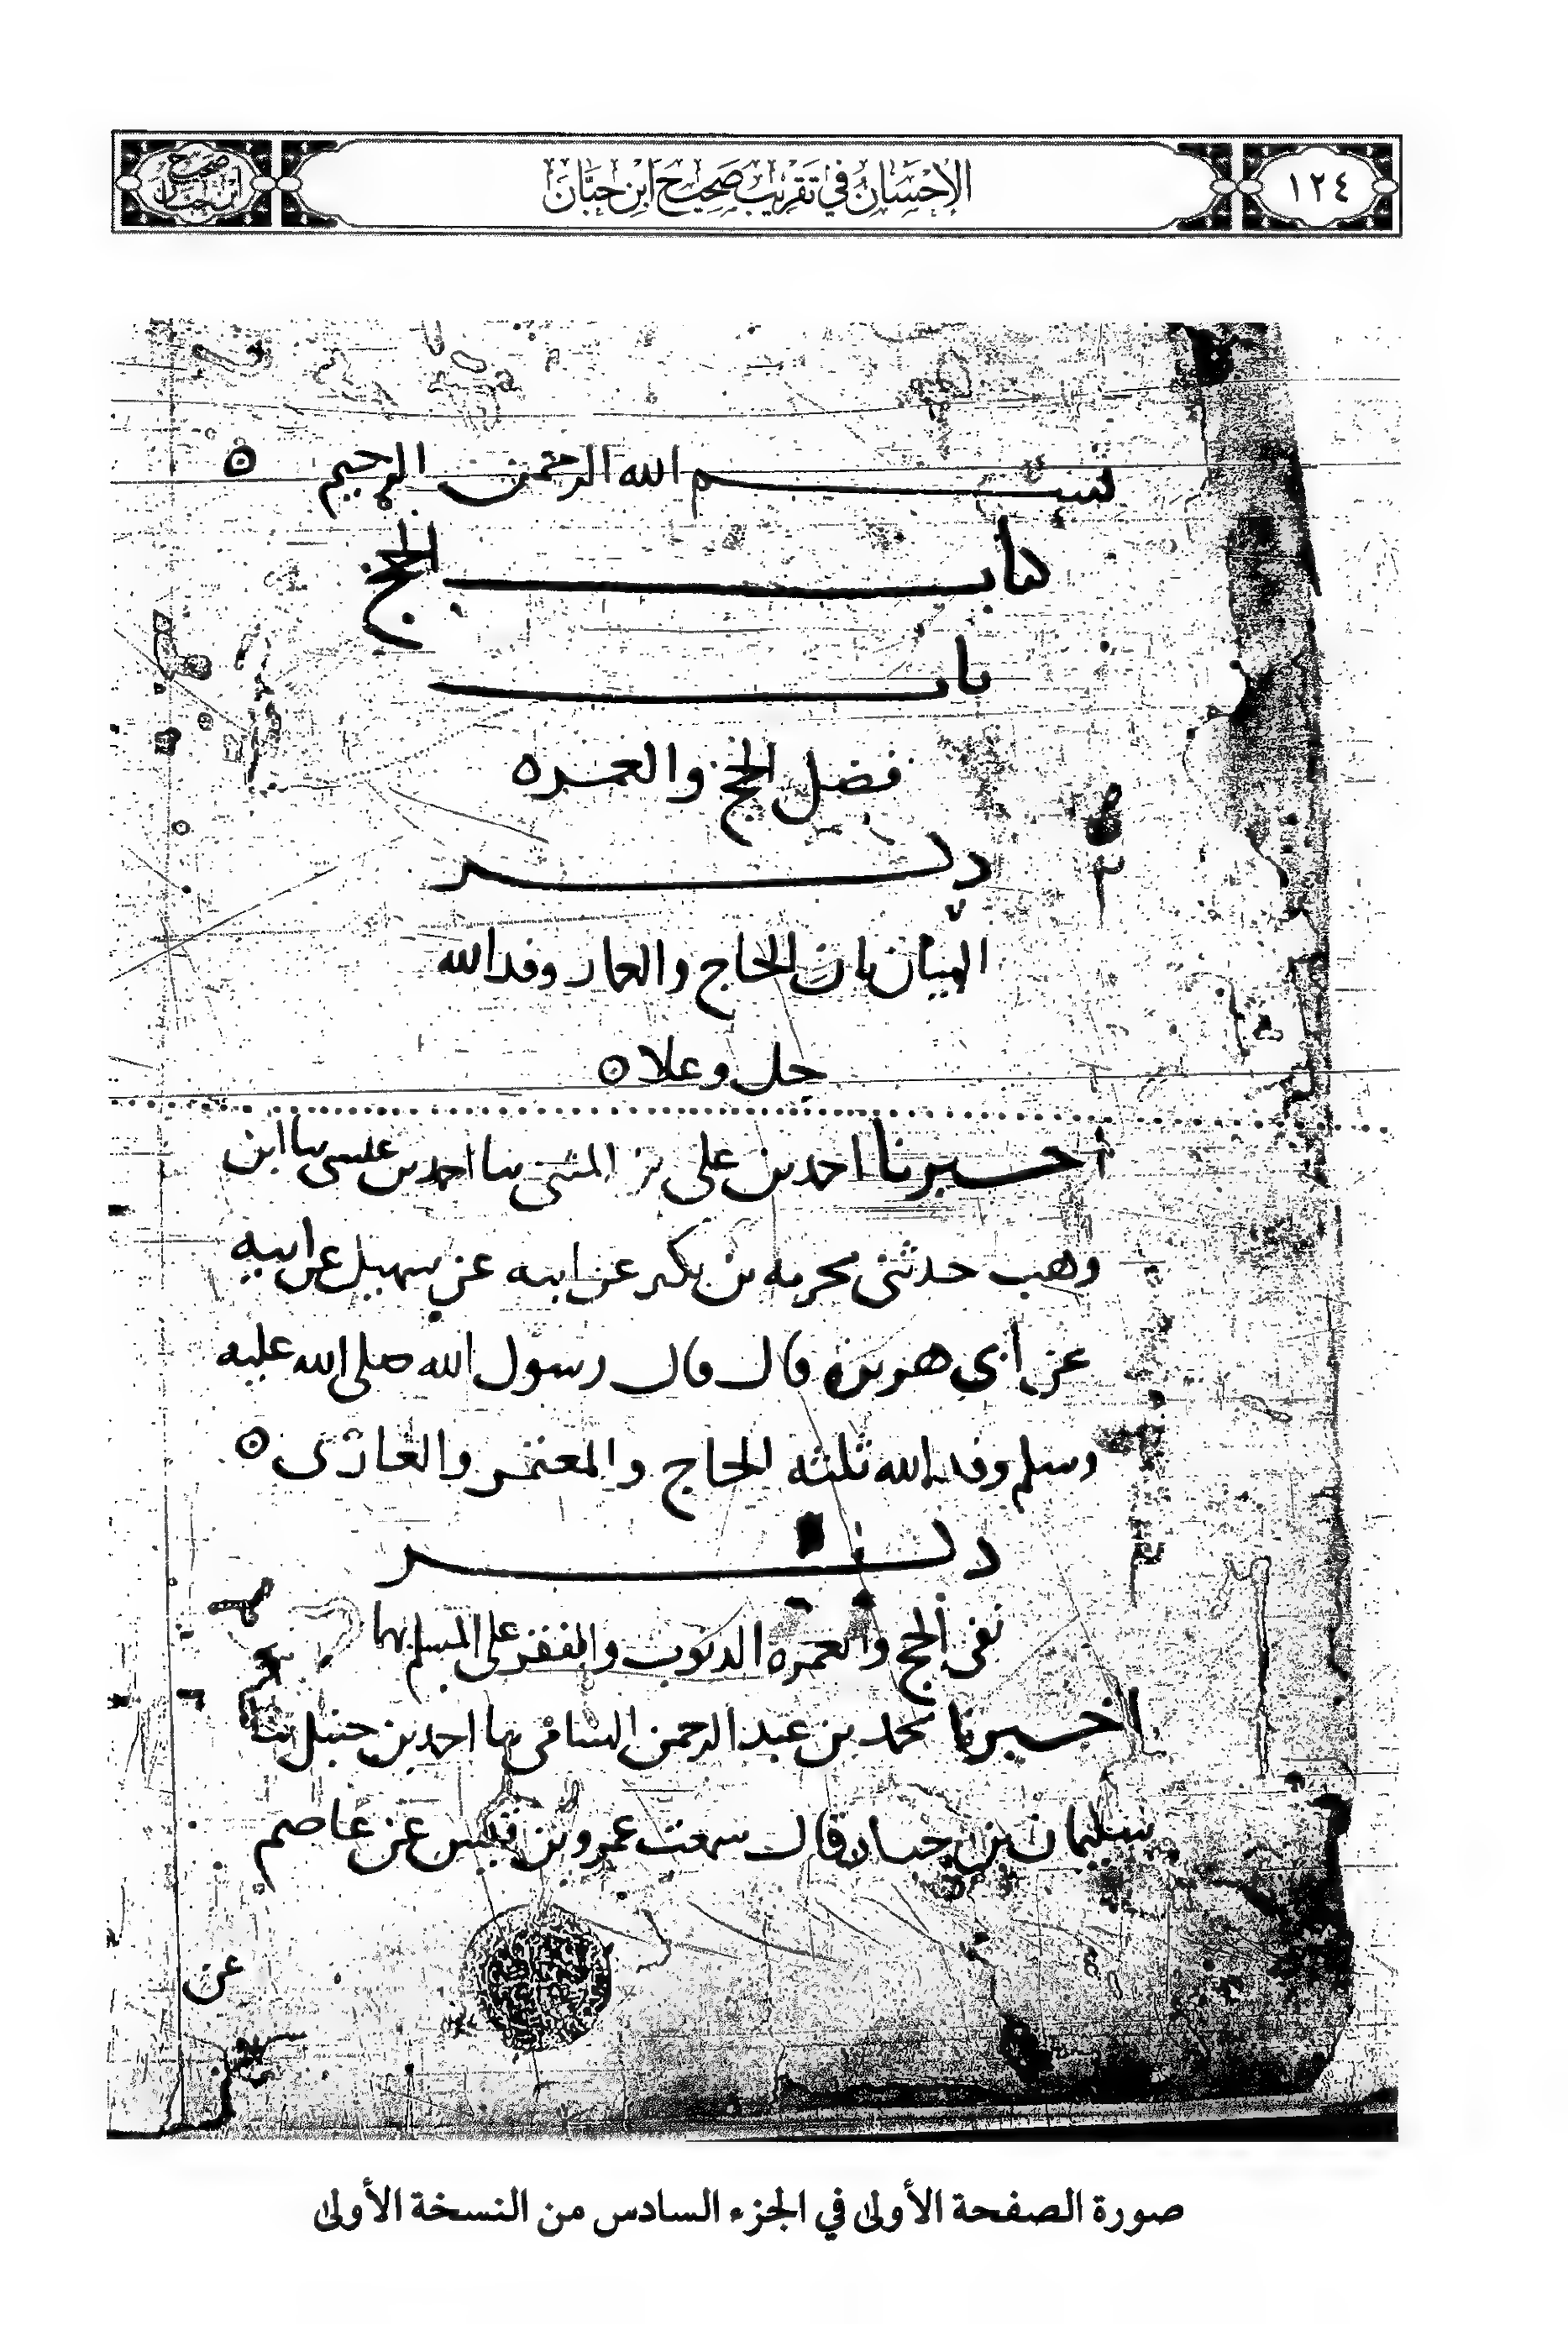 ١٢٤
الإحسان في تقريب صحيح ابن حبان
صحيح ابن حبان
بسم الله الرحمن الرحيم
كتاب الحج
باب
فضل الحج والعمره
ذكر
البيان بان الحاج والعمار وفد الله
جل وعلا
اخبرنا احمد بن على بن المثنى ثنا احمد بن عيسى ثنا ابن
وهب حدثنى مخرمه بن بكير عن ابيه عن سهيل عن ابيه
عن أبى هريرة قال قال رسول الله صلى الله عليه
وسلم وفد الله ثلثه الحاج والمعتمر والغازى
ذكر
نفى الحج والعمره الذنوب والفقر على المسلم بهما
اخبرنا محمد بن عبد الرحمن السامى ثنا احمد بن حنبل ثنا
سليمان بن حيان قال سمعت عمرو بن قيس عن عاصم
عن
صورة الصفحة الأولى في الجزء السادس من النسخة الأولى